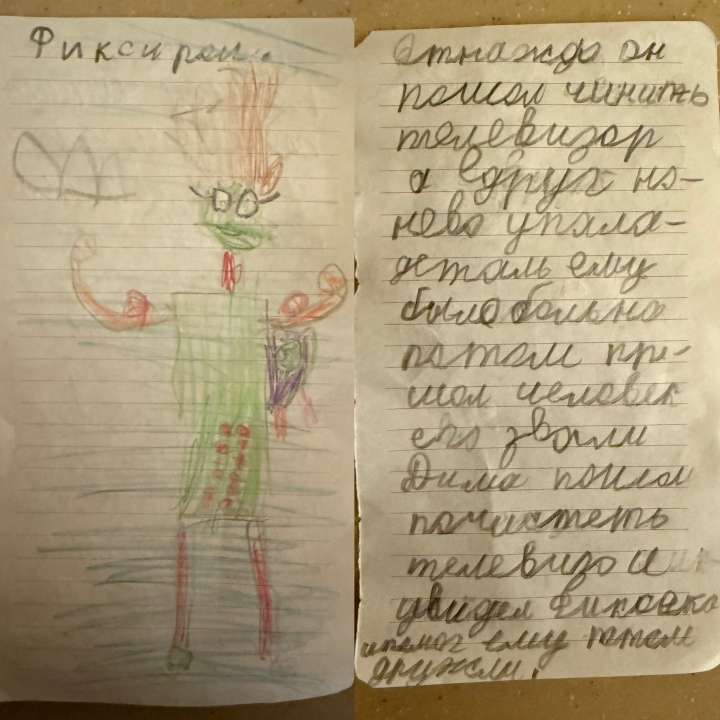 Фиксирен.
Отнаждо он
пошол чинить
телевизор
а вдруг на-
нево упала-
деталь ему
было больна
потом при-
шол человек
его звали
Дима пошол
почистеть
телевизо и
увидел
ипомог ему потом
дружели.